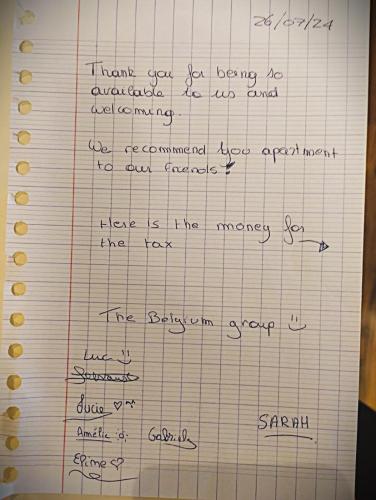 26/07/24
Thank you for being so
available to us and
welcoming.
We recommend you apartment
to our friends!
Here is the money for
the tax
The Belgium group :)
Luc :)
Lucie ♡
Amélie :) Gabriely
SARAH
♡